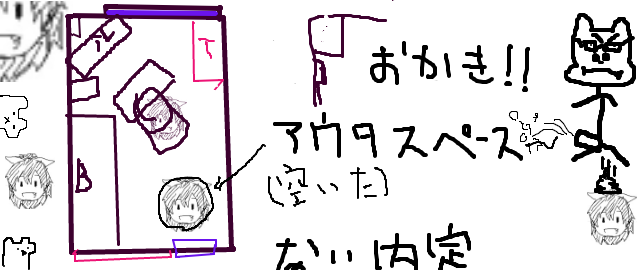 おかき!!
アウタスペース
(空いた)
ない内定